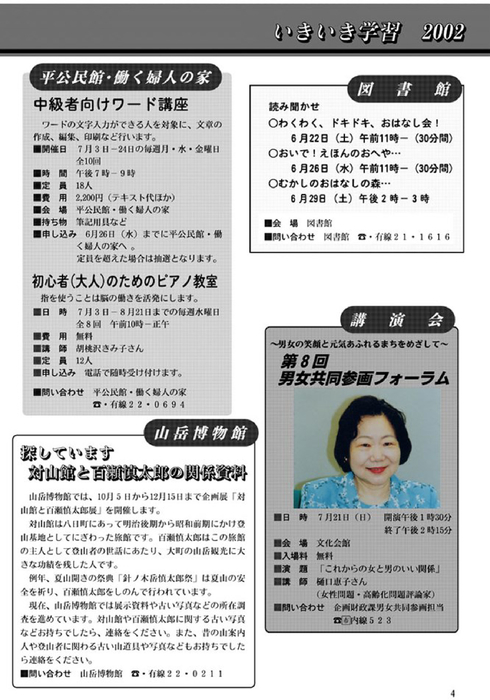 いきいき学習 2002
平公民館・働く婦人の家
中級者向けワード講座
ワードの文字入力ができる人を対象に、文章の
作成、編集、印刷など行います。
■開催日 7月3日−24日の毎週月・水・金曜日
全10回
■時 間 午後7時−9時
■定 員 18人
■費 用 2,200円（テキスト代ほか）
■会 場 平公民館・働く婦人の家
■持ち物 筆記用具など
■申し込み 6月26日（水）までに平公民館・働
く婦人の家へ 。
定員を超えた場合は抽選となります。
初心者(大人)のためのピアノ教室
指を使うことは脳の働きを活発にします。
■日 時 7月3日−8月21日までの毎週水曜日
全8回 午前10時−正午
■費 用 無料
■講 師 胡桃沢きみ子さん
■定 員 12人
■申し込み 電話で随時受け付けます。
■問い合わせ 平公民館・働く婦人の家
☎・有線22・0694
図書館
読み聞かせ
○わくわく、ドキドキ、おはなし会！
6月22日（土）午前11時−（30分間）
○おいで！えほんのおへや…
6月26日（水）午前11時−（30分間）
○むかしのおはなしの森…
6月29日（土）午後2時−3時
■会 場 図書館
■問い合わせ 図書館 ☎・有線21・1616
山岳博物館
探しています
対山館と百瀬慎太郎の関係資料
山岳博物館では、10月5日から12月15日まで企画展「対
山館と百瀬慎太郎展」を開催します。
対山館は八日町にあって明治後期から昭和前期にかけ登
山基地としてにぎわった旅館です。百瀬慎太郎はこの旅館
の主人として登山者の世話にあたり、大町の山岳観光に大
きな功績を残した人です。
例年、夏山開きの祭典「針ノ木岳慎太郎祭」は夏山の安
全を祈り、百瀬慎太郎をしのんで行われています。
現在、山岳博物館では展示資料や古い写真などの所在調
査を進めています。対山館や百瀬慎太郎に関する古い写真
などお持ちでしたら、連絡をください。また、昔の山案内
人や登山者に関わる古い山道具や写真などもお持ちでした
ら連絡ください。
■問い合わせ 山岳博物館 ☎・有線22・0211
講演会
〜男女の笑顔と元気あふれるまちをめざして〜
第8回
男女共同参画フォーラム
■日 時 7月21日（日） 開演午後1時30分
終了午後2時15分
■会 場 文化会館
■入場料 無料
■演 題 「これからの女と男のいい関係」
■講 師 樋口恵子さん
（女性問題・高齢化問題評論家）
■問い合わせ 企画財政課男女共同参画担当
内線523
4